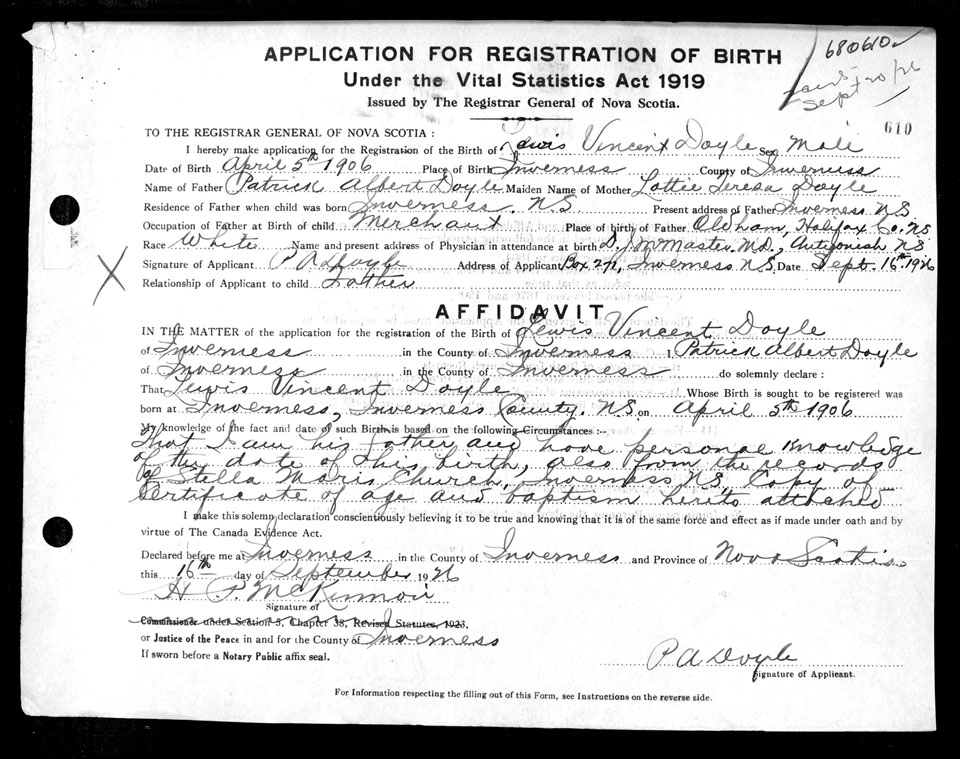 APPLICATION FOR REGISTRATION OF BIRTH
680610
Under the Vital Statistics Act 1919
Sept 20/26
Issued by The Registrar General of Nova Scotia.
610
TO THE REGISTRAR GENERAL OF NOVA SCOTIA :
I hereby make application for the Registration of the Birth of Lewis Vincent Doyle Sex Male
Date of Birth April 5th 1906 Place of Birth Inverness County of Inverness
Name of Father Patrick Albert Doyle Maiden Name of Mother Lottie Teresa Doyle
Residence of Father when child was born Inverness. N.S Present address of Father Inverness N.S
Occupation of Father at Birth of child Merchant Place of birth of Father Oldham, Halifax Co. N.S
Race White Name and present address of Physician in attendance at birth McMaster M.D., Antigonish N.S
Signature of Applicant P A Doyle Address of Applicant Box 271, Inverness N.S. Date Sept. 16th 1926
Relationship of Applicant to child Father
AFFIDAVIT
IN THE MATTER of the application for the registration of the Birth of Lewis Vincent Doyle
of Inverness in the County of Inverness I Patrick Albert Doyle
of Inverness in the County of Inverness do solemnly declare :
That Lewis Vincent Doyle Whose Birth is sought to be registered was
born at Inverness, Inverness County. N.S. on April 5th 1906
My knowledge of the fact and date of such Birth is based on the following Circumstances :-
That I am his father and have personal knowledge
of the date of this birth, also from the records
of Stella Maris Church, Inverness N.S. Copy of
Certificate of age and baptism herito attached
I make this solemn declaration conscientiously believing it to be true and knowing that it is of the same force and effect as if made under oath and by
virtue of The Canada Evidence Act.
Declared before me at Inverness in the County of Inverness and Province of Nova Scotia
this 16th day of September 1926
H. P. McKinnon
Signature of
Commissioner under Section 3, Chapter 38, Revised Statutes, 1923,
or Justice of the Peace in and for the County of Inverness
If sworn before a Notary Public affix seal.
P A Doyle
Signature of Applicant.
For Information respecting the filling out of this Form, see Instructions on the reverse side.